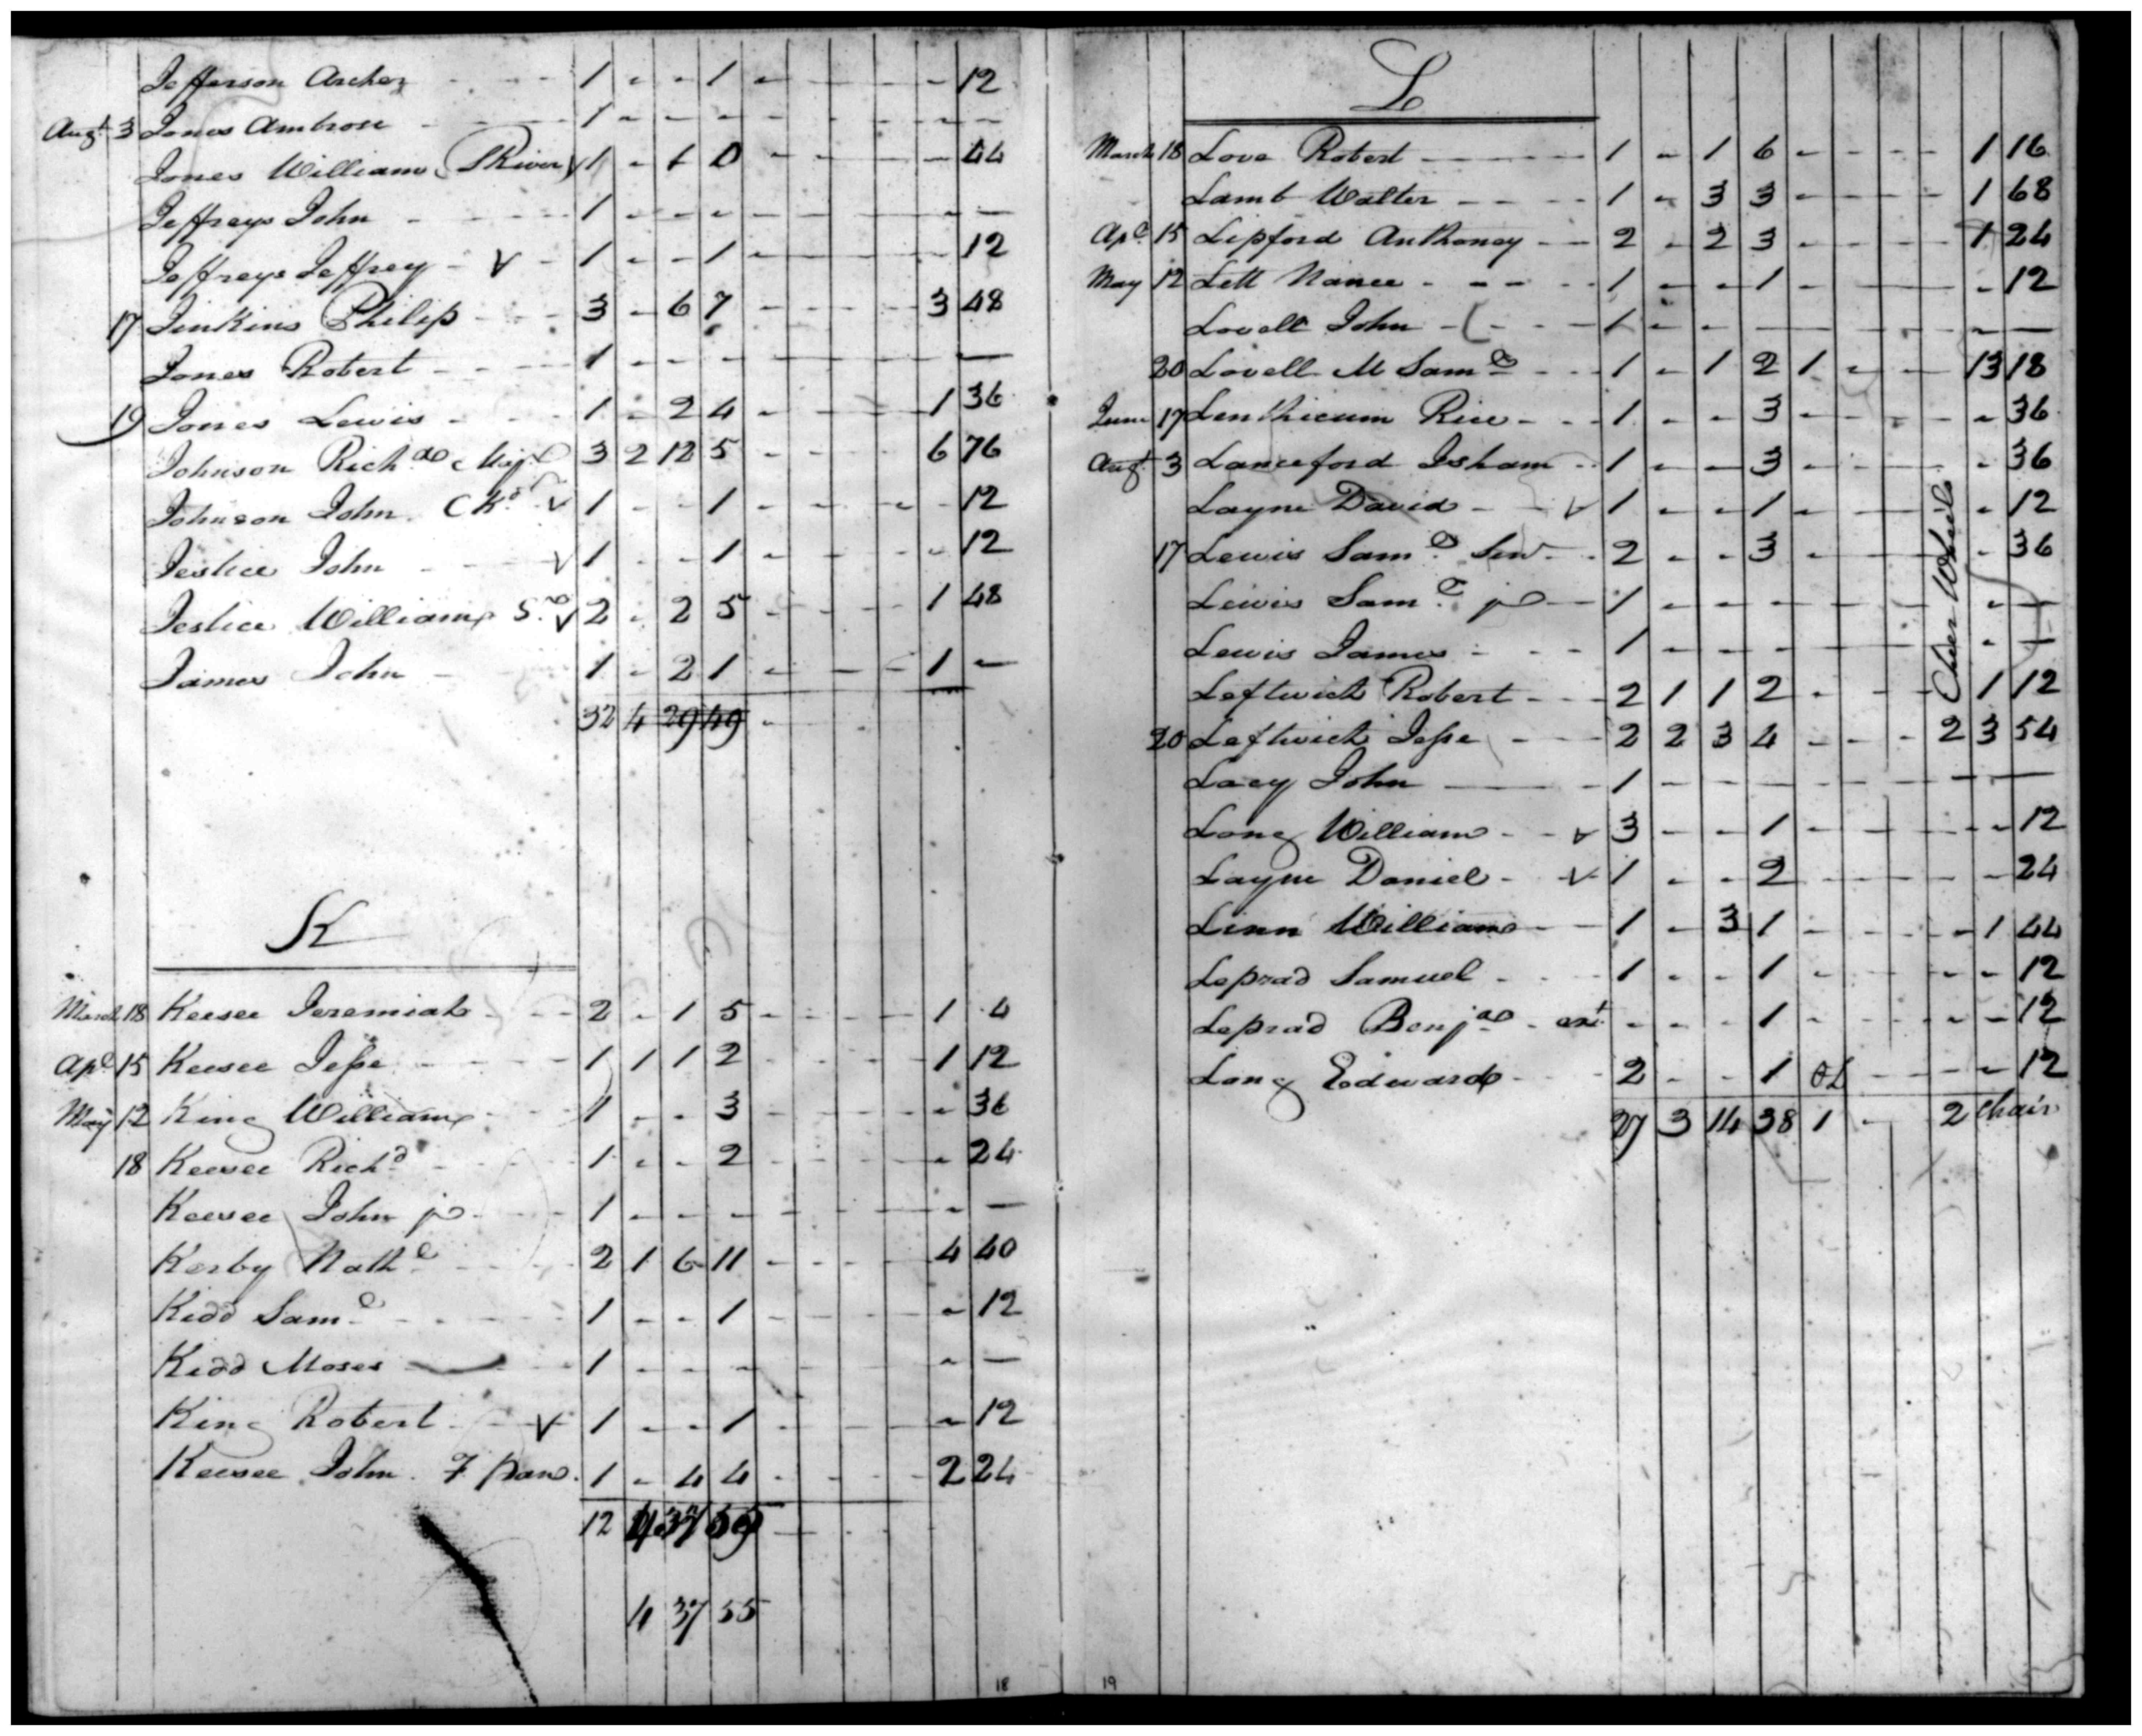 Jefferson Archer - - - 1 - - 1 - - - - - 12
Augt. 3 Jones Ambrose - - - 1 - - - - - - - - -
Jones William (SRiver) v 1 - 1 0 - - - - - 44
Jeffreys John - - - 1 - - - - - - - - -
Jeffreys Jeffrey - v - 1 - - 1 - - - - - 12
17 Jinkins Philip - - - 3 - 6 7 - - - - 3 48
Jones Robert - - - 1 - - - - - - - - -
19 Jones Lewis - - 1 - 2 4 - - - - 1 36
Johnson Richd. Majr. 3 2 12 5 - - - - 6 76
Johnson John CKd. v 1 - - 1 - - - - - 12
Jestice John - - v 1 - - 1 - - - - - 12
Jestice William S. v 2 - 2 5 - - - - 1 48
James John - 1 - 2 1 - - - - 1 -
32 4 29 49 -
K
March 18 Keesee Jeremiah - - 2 - 1 5 - - - - 1 4
Apl. 15 Keesee Jesse - - - 1 1 1 2 - - - - 1 12
May 12 King William - - 1 - - 3 - - - - - 36
18 Keesee Richd. - - - 1 - - 2 - - - - - 24
Keesee John jr - - 1 - - - - - - - - -
Kerby Nathl. - - - 2 1 6 11 - - - - 4 40
Kidd Saml. - - - 1 - - 1 - - - - - 12
Kidd Moses - 1 - - - - - - - - -
King Robert - v 1 - - 1 - - - - - 12
Keesee John 1 - 4 4 - - - - 2 24
12 4 37
4 37 55
18
L
March 18 Love Robert - - - 1 - 1 6 - - - - 1 16
Lamb Walter - - - 1 - 3 3 - - - - 1 68
Apl. 15 Lipford Anthoney - - 2 - 2 3 - - - - 1 24
May 12 Lett Nance - - - - 1 - - 1 - - - - - 12
Lovell John - - - 1 - - - - - - - - -
20 Lovell M Saml. - - 1 - 1 2 1 - - 13 18
June 17 Lenthicum Rice - - - 1 - - 3 - - - - - 36
Augt. 3 Lanceford Isham - - 1 - - 3 - - - - - 36
Layne David - - v 1 - - 1 - - - - - 12
17 Lewis Saml. Senr. - 2 - - 3 - - - - - 36
Lewis Saml. jr - 1 - - - - - - - - -
Lewis James - - - 1 - - - - - - - - -
Leftwich Robert - - - 2 1 1 2 - - - 1 12
20 Leftwich Jesse - - 2 2 3 4 - - - 2 3 54
Chair Wheels
Lacy John - - 1 - - - - - - - - -
Long William - - v 3 - - 1 - - - - - 12
Layne Daniel - v 1 - - 2 - - - - - 24
Linn William - - 1 - 3 1 - - - - 1 44
Leprad Samuel - - - 1 - - 1 - - - - - 12
Leprad Benja. - ext. - - - 1 - - - - - 12
Long Edward - - 2 - - 1 - - - - 12
27 3 14 38 1 - 2 Chair
19